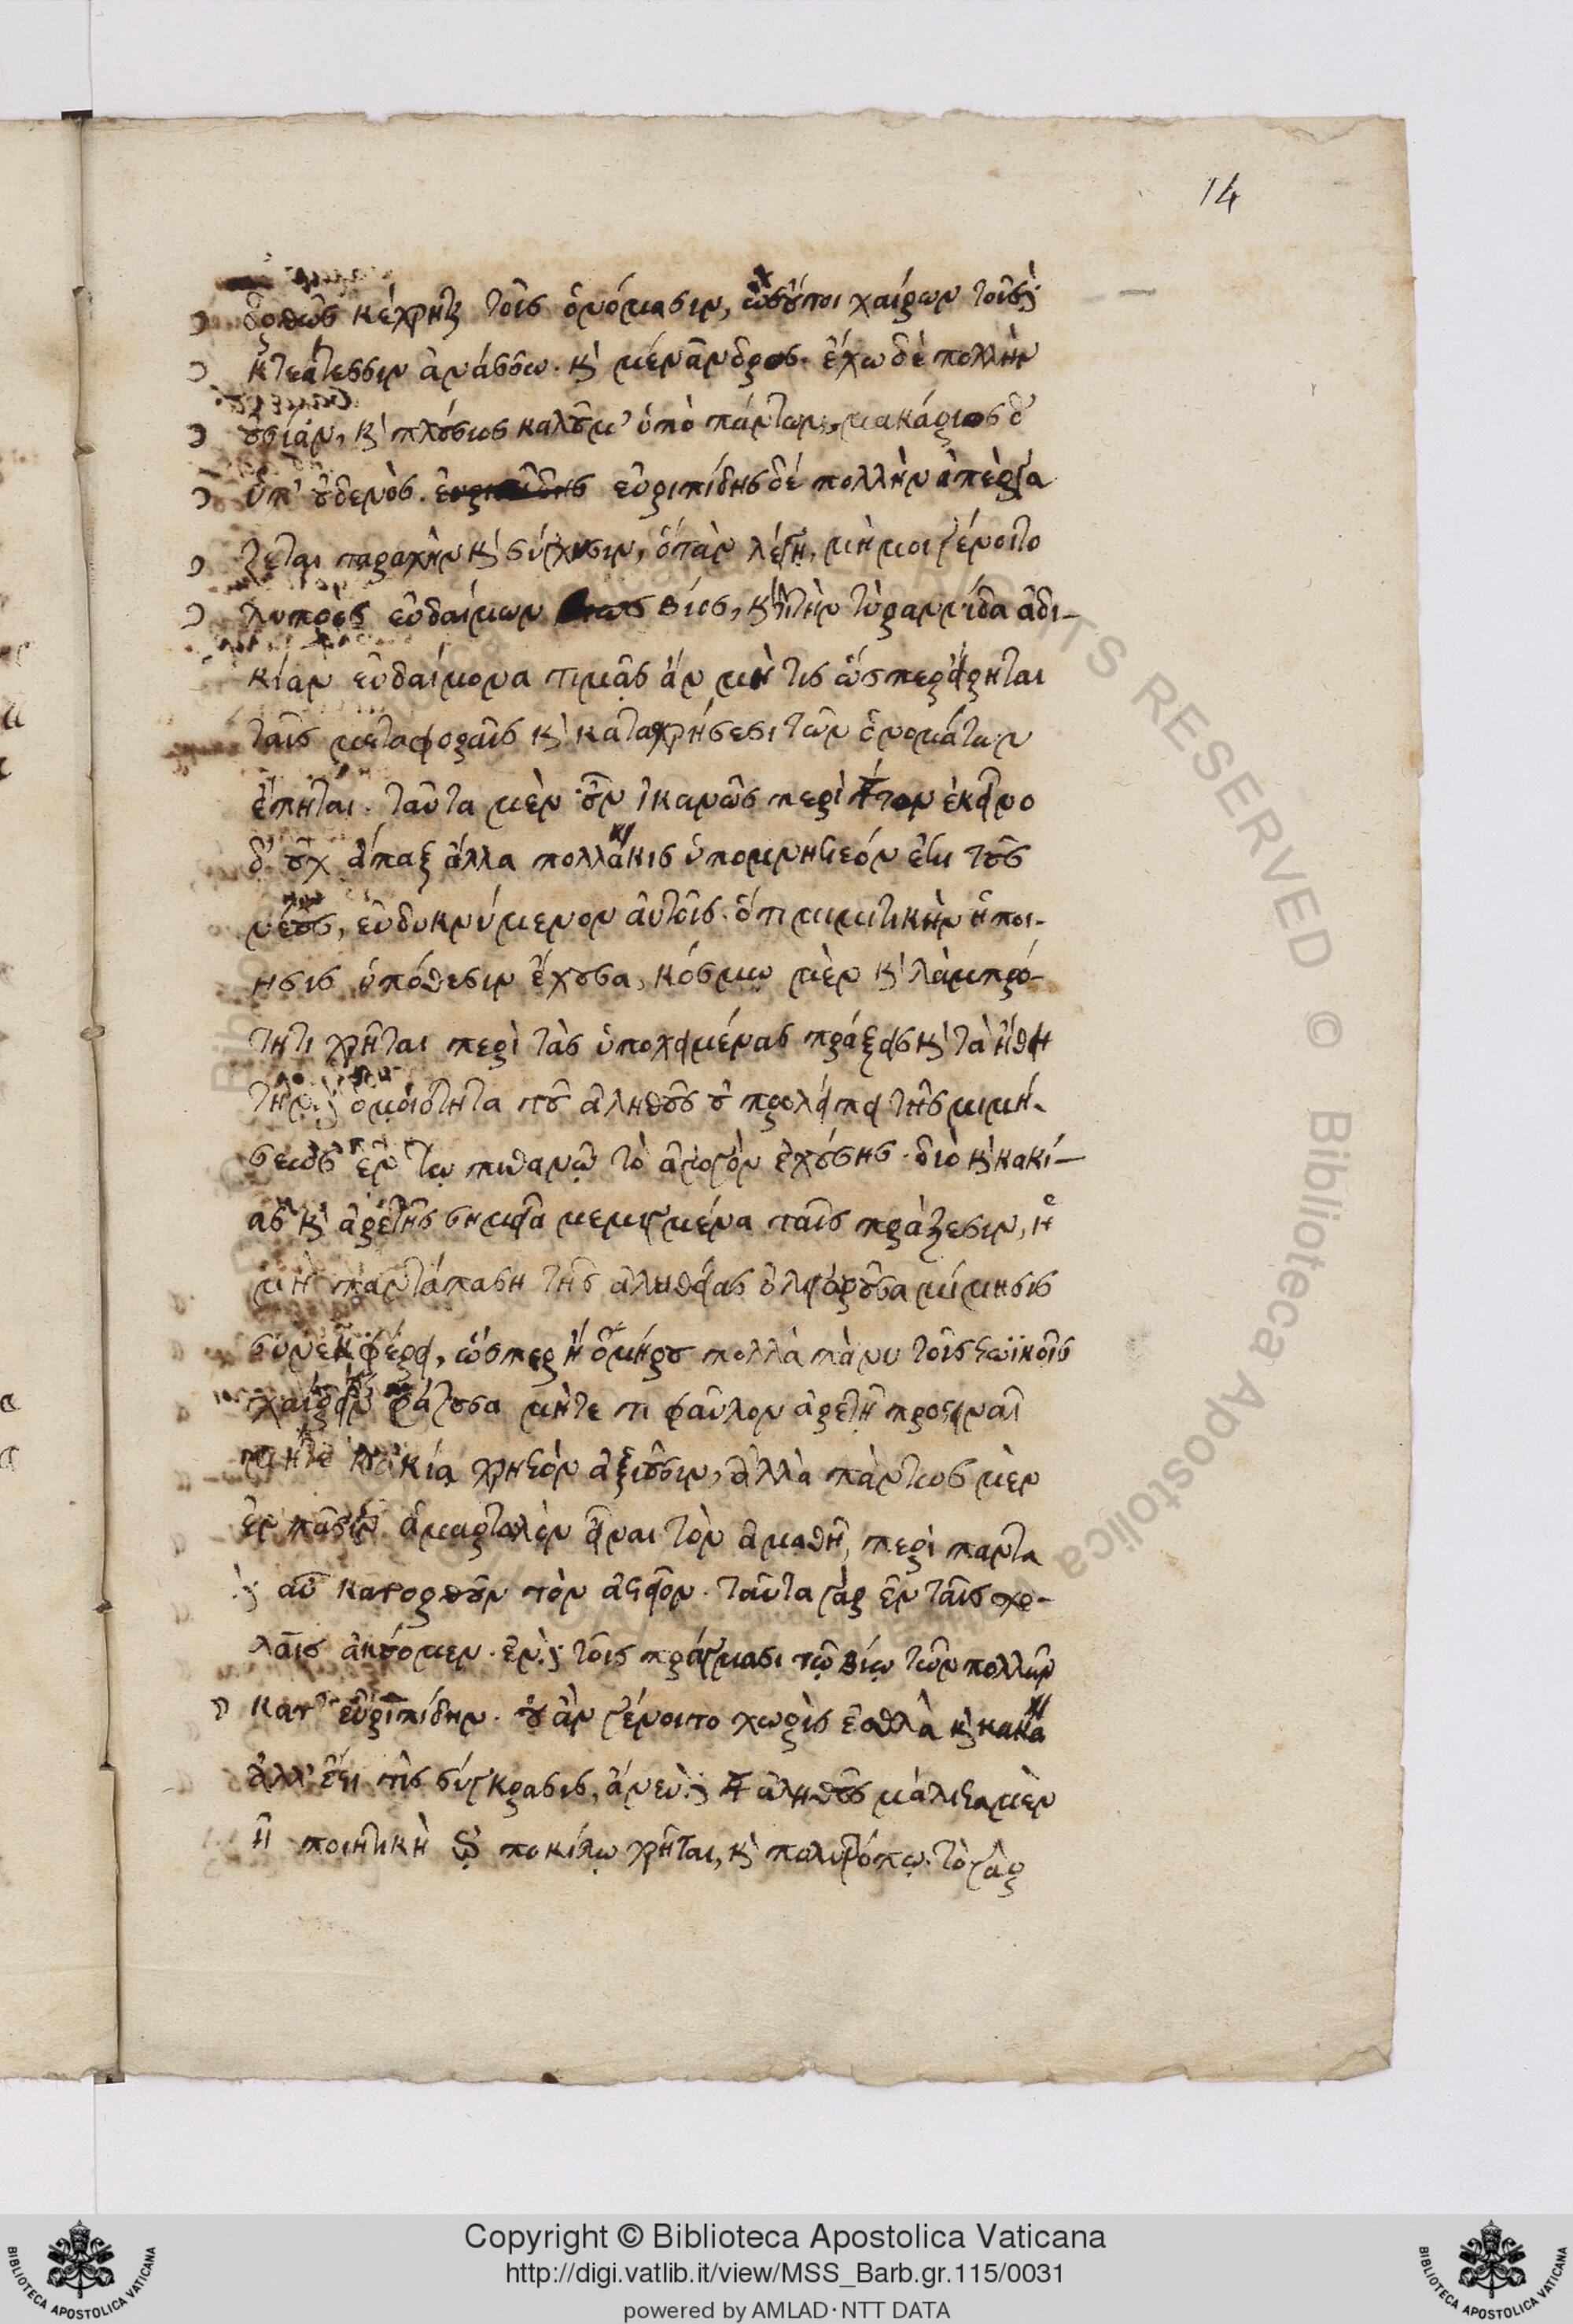 14
ὀρθῶς κέχρηται τοῖς ὀνόμασιν, ὡς οὔτοι χαίρων τοῖσδε
κτεάτεσσιν ἀνάσσω. καὶ μένανδρος. ἔχω δὲ πολλὴν
οὐσίαν, καὶ πλούσιος καλοῦμ' ὑπὸ πάντων, μακάριος δ'
ὑπ' οὐδενὸς. εὐριπίδης δὲ πολλὴν ἀπεργά
ζεται ταραχὴν καὶ σύγχυσιν, ὅταν λέγῃ, μή μοι γένοιτο
λυπρὸς εὐδαίμων βίος, καὶ τί τὴν τυραννίδα ἀδι-
κίαν εὐδαίμονα τιμᾷς ἂν μή τις ὥσπερ εἴρηται
ταῖς μεταφοραῖς καὶ καταχρήσεσι τῶν ὀνομάτων
ἕπηται. ταῦτα μὲν οὖν ἱκανῶς περὶ τούτων ἐκεῖνο
δ' οὐχ ἅπαξ ἀλλα πολλάκις ὑπομνηστέον ἐστι τοὺς
νέους, ἐνδυκνύμενον αὐτοῖς. ὅτι μιμιτικὴν ἡ ποί-
ησις ὑπόθεσιν ἔχουσα, κόσμῳ μὲν καὶ λαμπρό-
τητι χρῆται περὶ τὰς ὑποχειμένας πράξεις καὶ τὰ ἤθη
τὴν δὲ ὁμοιότητα τοῦ ἀληθοῦς οὐ προλείπει τῆς μιμή-
σεως ἐν τῷ πιθανῷ τὸ ἀγωγὸν ἐχούσης. διὸ καὶ κακί-
ας καὶ ἀρετῆς σημεῖα μεμιγμένα ταῖς πράξεσιν, ἡ
μὴ παντάπασιν τῆς ἀληθείας ὀλιγωροῦσα μίμησις
συνεκφέρει, ὥσπερ ἡ ὁμήρου πολλὰ πάνυ τοῖς στωϊκοῖς
χαίρειν φράζουσα μήτε τι φαῦλον ἀρετῇ προσεῖναι
μήτε κακίᾳ χρηστὸν ἀξιοῦσιν, ἀλλὰ πάντως μὲν
ἐν πᾶσιν ἁμαρτωλὸν εἶναι τὸν ἀμαθῆ, περὶ παντα
δὲ αὖ κατορθοῦν τὸν ἀστεῖον. ταῦτα γὰρ ἐν ταῖς σχο-
λαῖς ἀκούομεν. ἐν δὲ τοῖς πράγμασι τῷ βίῳ τῶν πολλῶν
κατ' εὐριπίδην. οὐ ἂν γένοιτο χωρὶς ἐσθλὰ καὶ κακά
ἀλλ' ἔστι τὶς σύγκρασις, ἄνευ δὲ τοῦ ἀληθοῦς μάλιστα μὲν
ἡ ποιητικὴ τῷ ποικίλῳ χρῆται, καὶ πολυτρόπῳ. τὸ γὰρ
RIGHTS RESERVED © Biblioteca Apostolica Vaticana
Copyright © Biblioteca Apostolica Vaticana
http://digi.vatlib.it/view/MSS_Barb.gr.115/0031
powered by AMLAD·NTT DATA
BIBLIOTECA APOSTOLICA VATICANA
BIBLIOTECA APOSTOLICA VATICANA